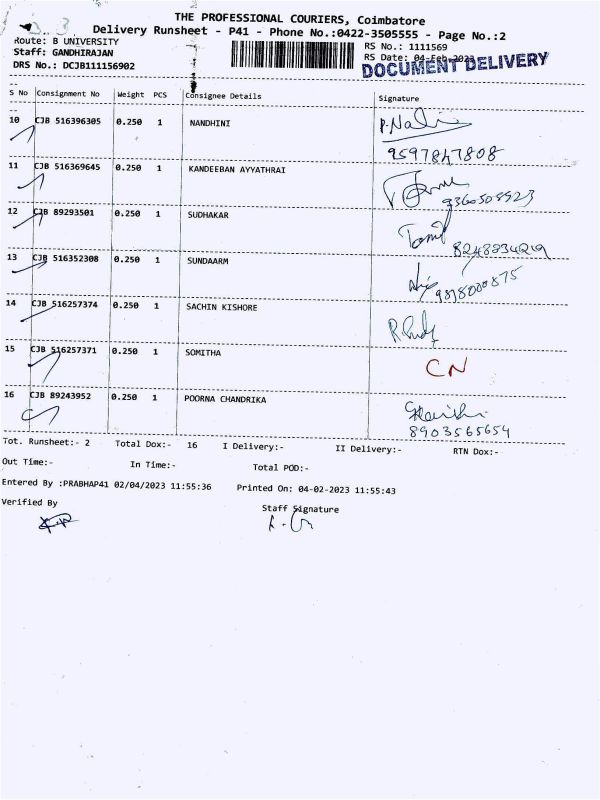 THE PROFESSIONAL COURIERS, Coimbatore
Delivery Runsheet - P41 - Phone No.:0422-3505555 - Page No.:2
Route: B UNIVERSITY
RS No.: 1111569
Staff: GANDHIRAJAN
RS Date: 04-Feb-2023
DRS No.: DCJB111156902
DOCUMENT DELIVERY
S No Consignment No Weight PCS Consignee Details Signature
10 CJB 516396305 0.250 1 NANDHINI
9597847808
11 CJB 516369645 0.250 1 KANDEEBAN AYYATHRAI
12 CJB 89293501 0.250 1 SUDHAKAR
13 CJB 516352308 0.250 1 SUNDAARM
14 CJB 516257374 0.250 1 SACHIN KISHORE
15 CJB 516257371 0.250 1 SOMITHA CN
16 CJB 89243952 0.250 1 POORNA CHANDRIKA
8903565654
Tot. Runsheet:- 2 Total Dox:- 16 I Delivery:- II Delivery:- RTN Dox:-
Out Time:- In Time:- Total POD:-
Entered By :PRABHAP41 02/04/2023 11:55:36 Printed On: 04-02-2023 11:55:43
Verified By Staff Signature